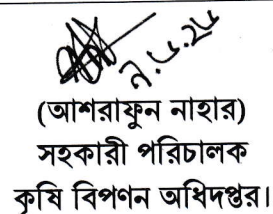 (আশরাফুন নাহার)
সহকারী পরিচালক
কৃষি বিপণন অধিদপ্তর।